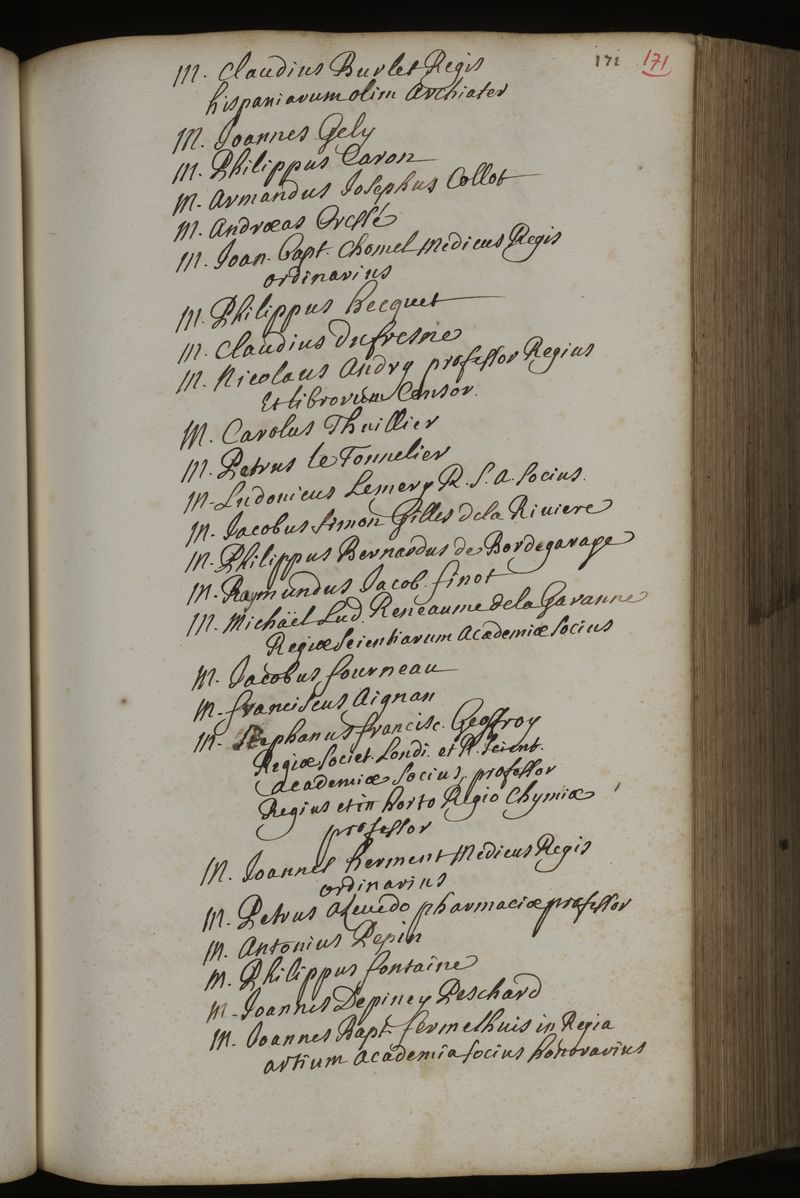 171 171
M. Claudius Burlet Regis
hispaniarum olim Archiater
M. Joannes Gely
M. Philippus Caron
M. Armandus Josephus Collot
M. Andræas Cressé
M. Joan. Bapt. Chomel Medicus Regis
ordinarius
M. Philippus hecquet
M. Claudius Dufresne
M. Nicolaus Andry professor Regius
Et librorum Censor.
M. Carolus Thuillier
M. Petrus le Tonnelier
M. Ludovicus Lemery R. S. A. Socius.
M. Jacobus Simon Gilles de la Riviere
M. Philippus Bernardus de Bordegaraye
M. Raymundus Jacob. finot
M. Michaël Lud. Reneaume de la Garanne
Regiæ Scientiarum Academiæ Socius
M. Jacobus fourneau
M. franciscus Aignan
M. Stephanus francisc. Geoffroy
Regiæ Societ. Londi. et R. Scient.
Academiæ Socius, professor
Regius et in horto Regio Chymiæ
professor
M. Joannes herment Medicus Regis
ordinarius
M. Petrus Azevedo pharmaciæ professor
M. Antonius Pepin
M. Philippus fontaine
M. Joannes Depiney Peschard
M. Joannes Bapt. fermelhuis in Regia
artium Academia socius honorarius